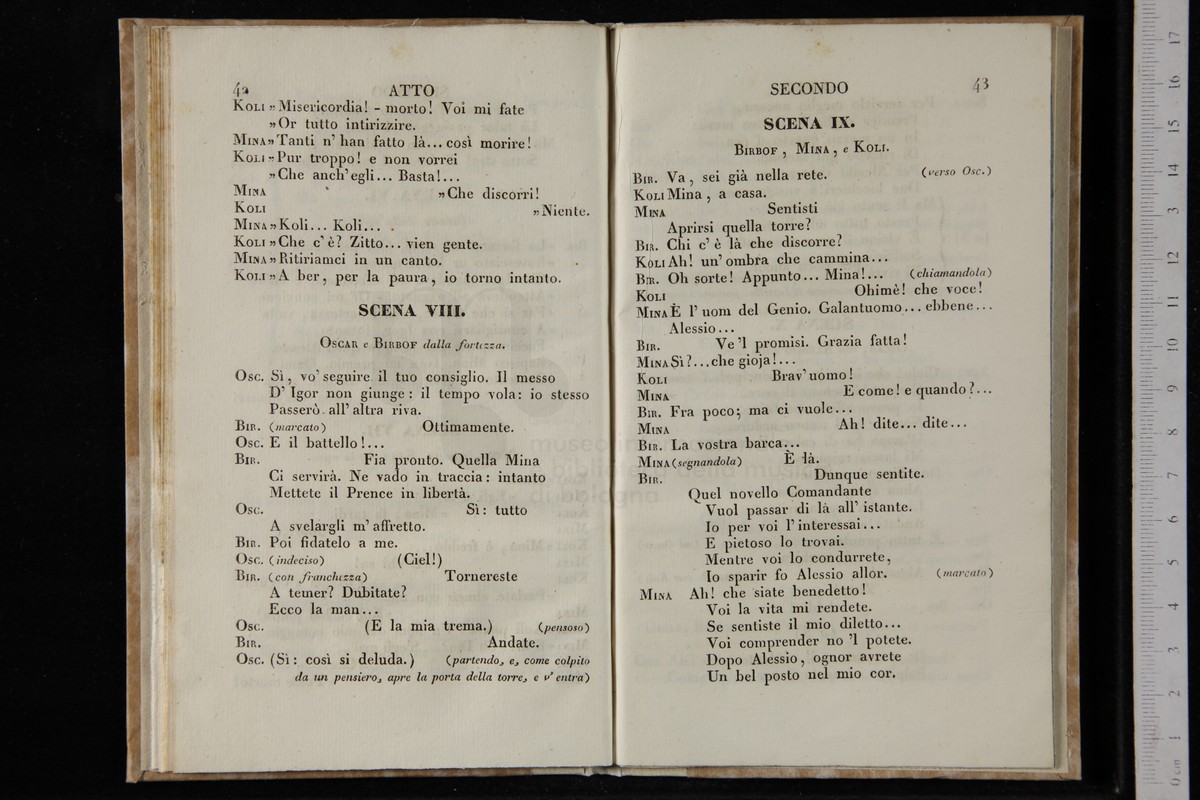 42 ATTO
KOLI » Misericordia! - morto! Voi mi fate
» Or tutto intirizzire.
MINA » Tanti n' han fatto là... così morire!
KOLI » Pur troppo! e non vorrei
» Che anch' egli... Basta!...
MINA » Che discorri!
KOLI » Niente.
MINA » Koli... Koli...
KOLI » Che c' è? Zitto... vien gente.
MINA » Ritiriamci in un canto.
KOLI » A ber, per la paura, io torno intanto.
SCENA VIII.
OSCAR e BIRBOF dalla fortezza.
OSC. Sì, vo' seguire il tuo consiglio. Il messo
D' Igor non giunge: il tempo vola: io stesso
Passerò all' altra riva.
BIR. (marcato) Ottimamente.
OSC. E il battello!...
BIR. Fia pronto. Quella Mina
Ci servirà. Ne vado in traccia: intanto
Mettete il Prence in libertà.
OSC. Sì: tutto
A svelargli m' affretto.
BIR. Poi fidatelo a me.
OSC. (indeciso) (Ciel!)
BIR. (con franchezza) Tornereste
A temer? Dubitate?
Ecco la man...
OSC. (E la mia trema.) (pensoso)
BIR. Andate.
OSC. (Sì: così si deluda.) (partendo, e, come colpito
da un pensiero, apre la porta della torre, e v' entra)
SECONDO 43
SCENA IX.
BIRBOF, MINA, e KOLI.
BIR. Va, sei già nella rete. (verso Osc.)
KOLI Mina, a casa.
MINA Sentisti
Aprirsi quella torre?
BIR. Chi c' è là che discorre?
KOLI Ah! un' ombra che cammina...
BIR. Oh sorte! Appunto... Mina!... (chiamandola)
KOLI Ohimè! che voce!
MINA È l' uom del Genio. Galantuomo... ebbene...
Alessio...
BIR. Ve 'l promisi. Grazia fatta!
MINA Sì?...che gioja!...
KOLI Brav' uomo!
MINA E come! e quando?...
BIR. Fra poco; ma ci vuole...
MINA Ah! dite... dite...
BIR. La vostra barca...
MINA (segnandola) È là.
BIR. Dunque sentite.
Quel novello Comandante
Vuol passar di là all' istante.
Io per voi l' interessai...
E pietoso lo trovai.
Mentre voi lo condurrete,
Io sparir fo Alessio allor. (marcato)
MINA Ah! che siate benedetto!
Voi la vita mi rendete.
Se sentiste il mio diletto...
Voi comprender no 'l potete.
Dopo Alessio, ognor avrete
Un bel posto nel mio cor.